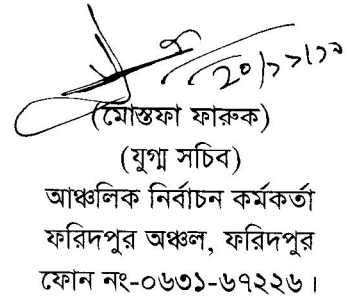 ২০/১১/১৯
(মোস্তফা ফারুক)
(যুগ্ম সচিব)
আঞ্চলিক নির্বাচন কর্মকর্তা
ফরিদপুর অঞ্চল, ফরিদপুর
ফোন নং-০৬৩১-৬৭২২৬।